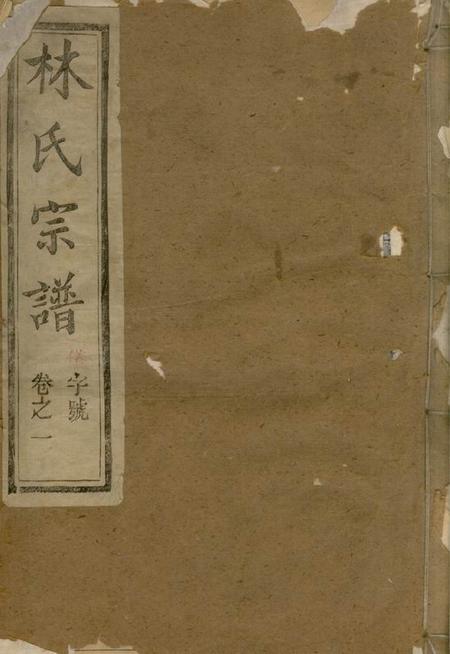 林氏宗譜
字號
卷之一